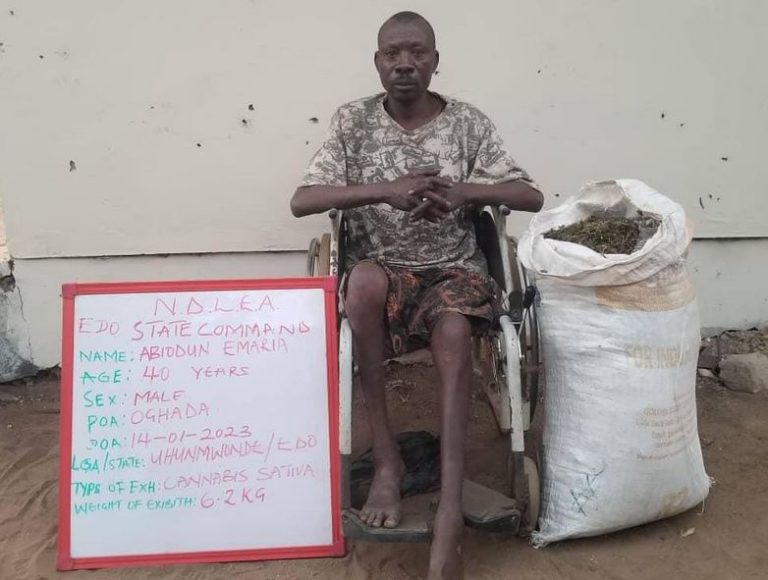 N.D.L.E.A.
EDO STATE COMMAND
NAME: ABIODUN EMARIA
AGE: 40 YEARS
SEX: MALE
POA: OGHADA
DOA: 14-01-2023
LGA/STATE: UHUNMWONDE/EDO
TYPE OF EXH: CANNABIS SATIVA
WEIGHT OF EXIBITH: 6.2KG
FOR